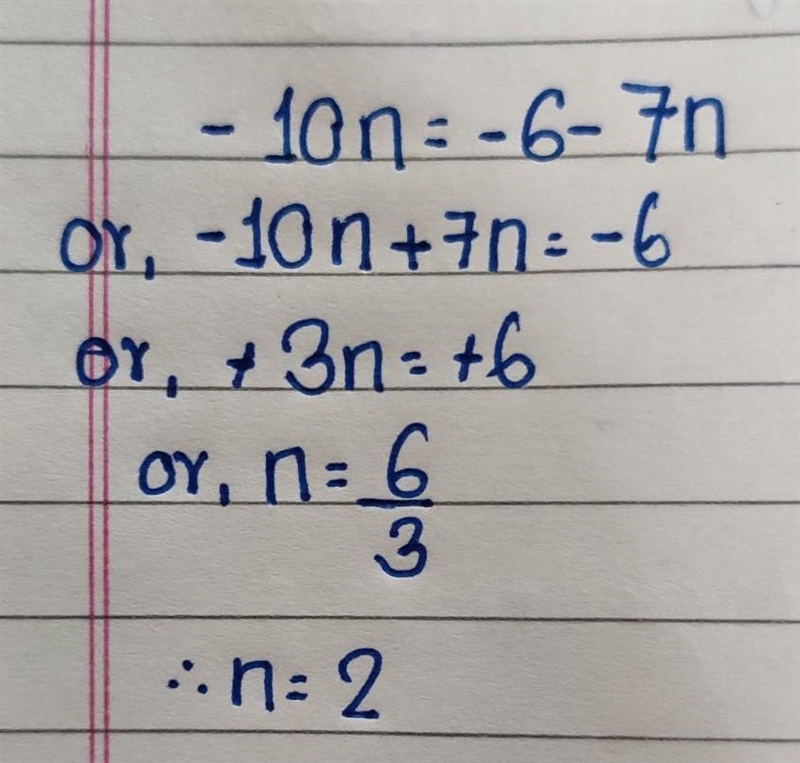 - 10n = -6 - 7n
or, -10n + 7n = -6
or, + 3n = +6
or, n = 6/3
∴ n = 2